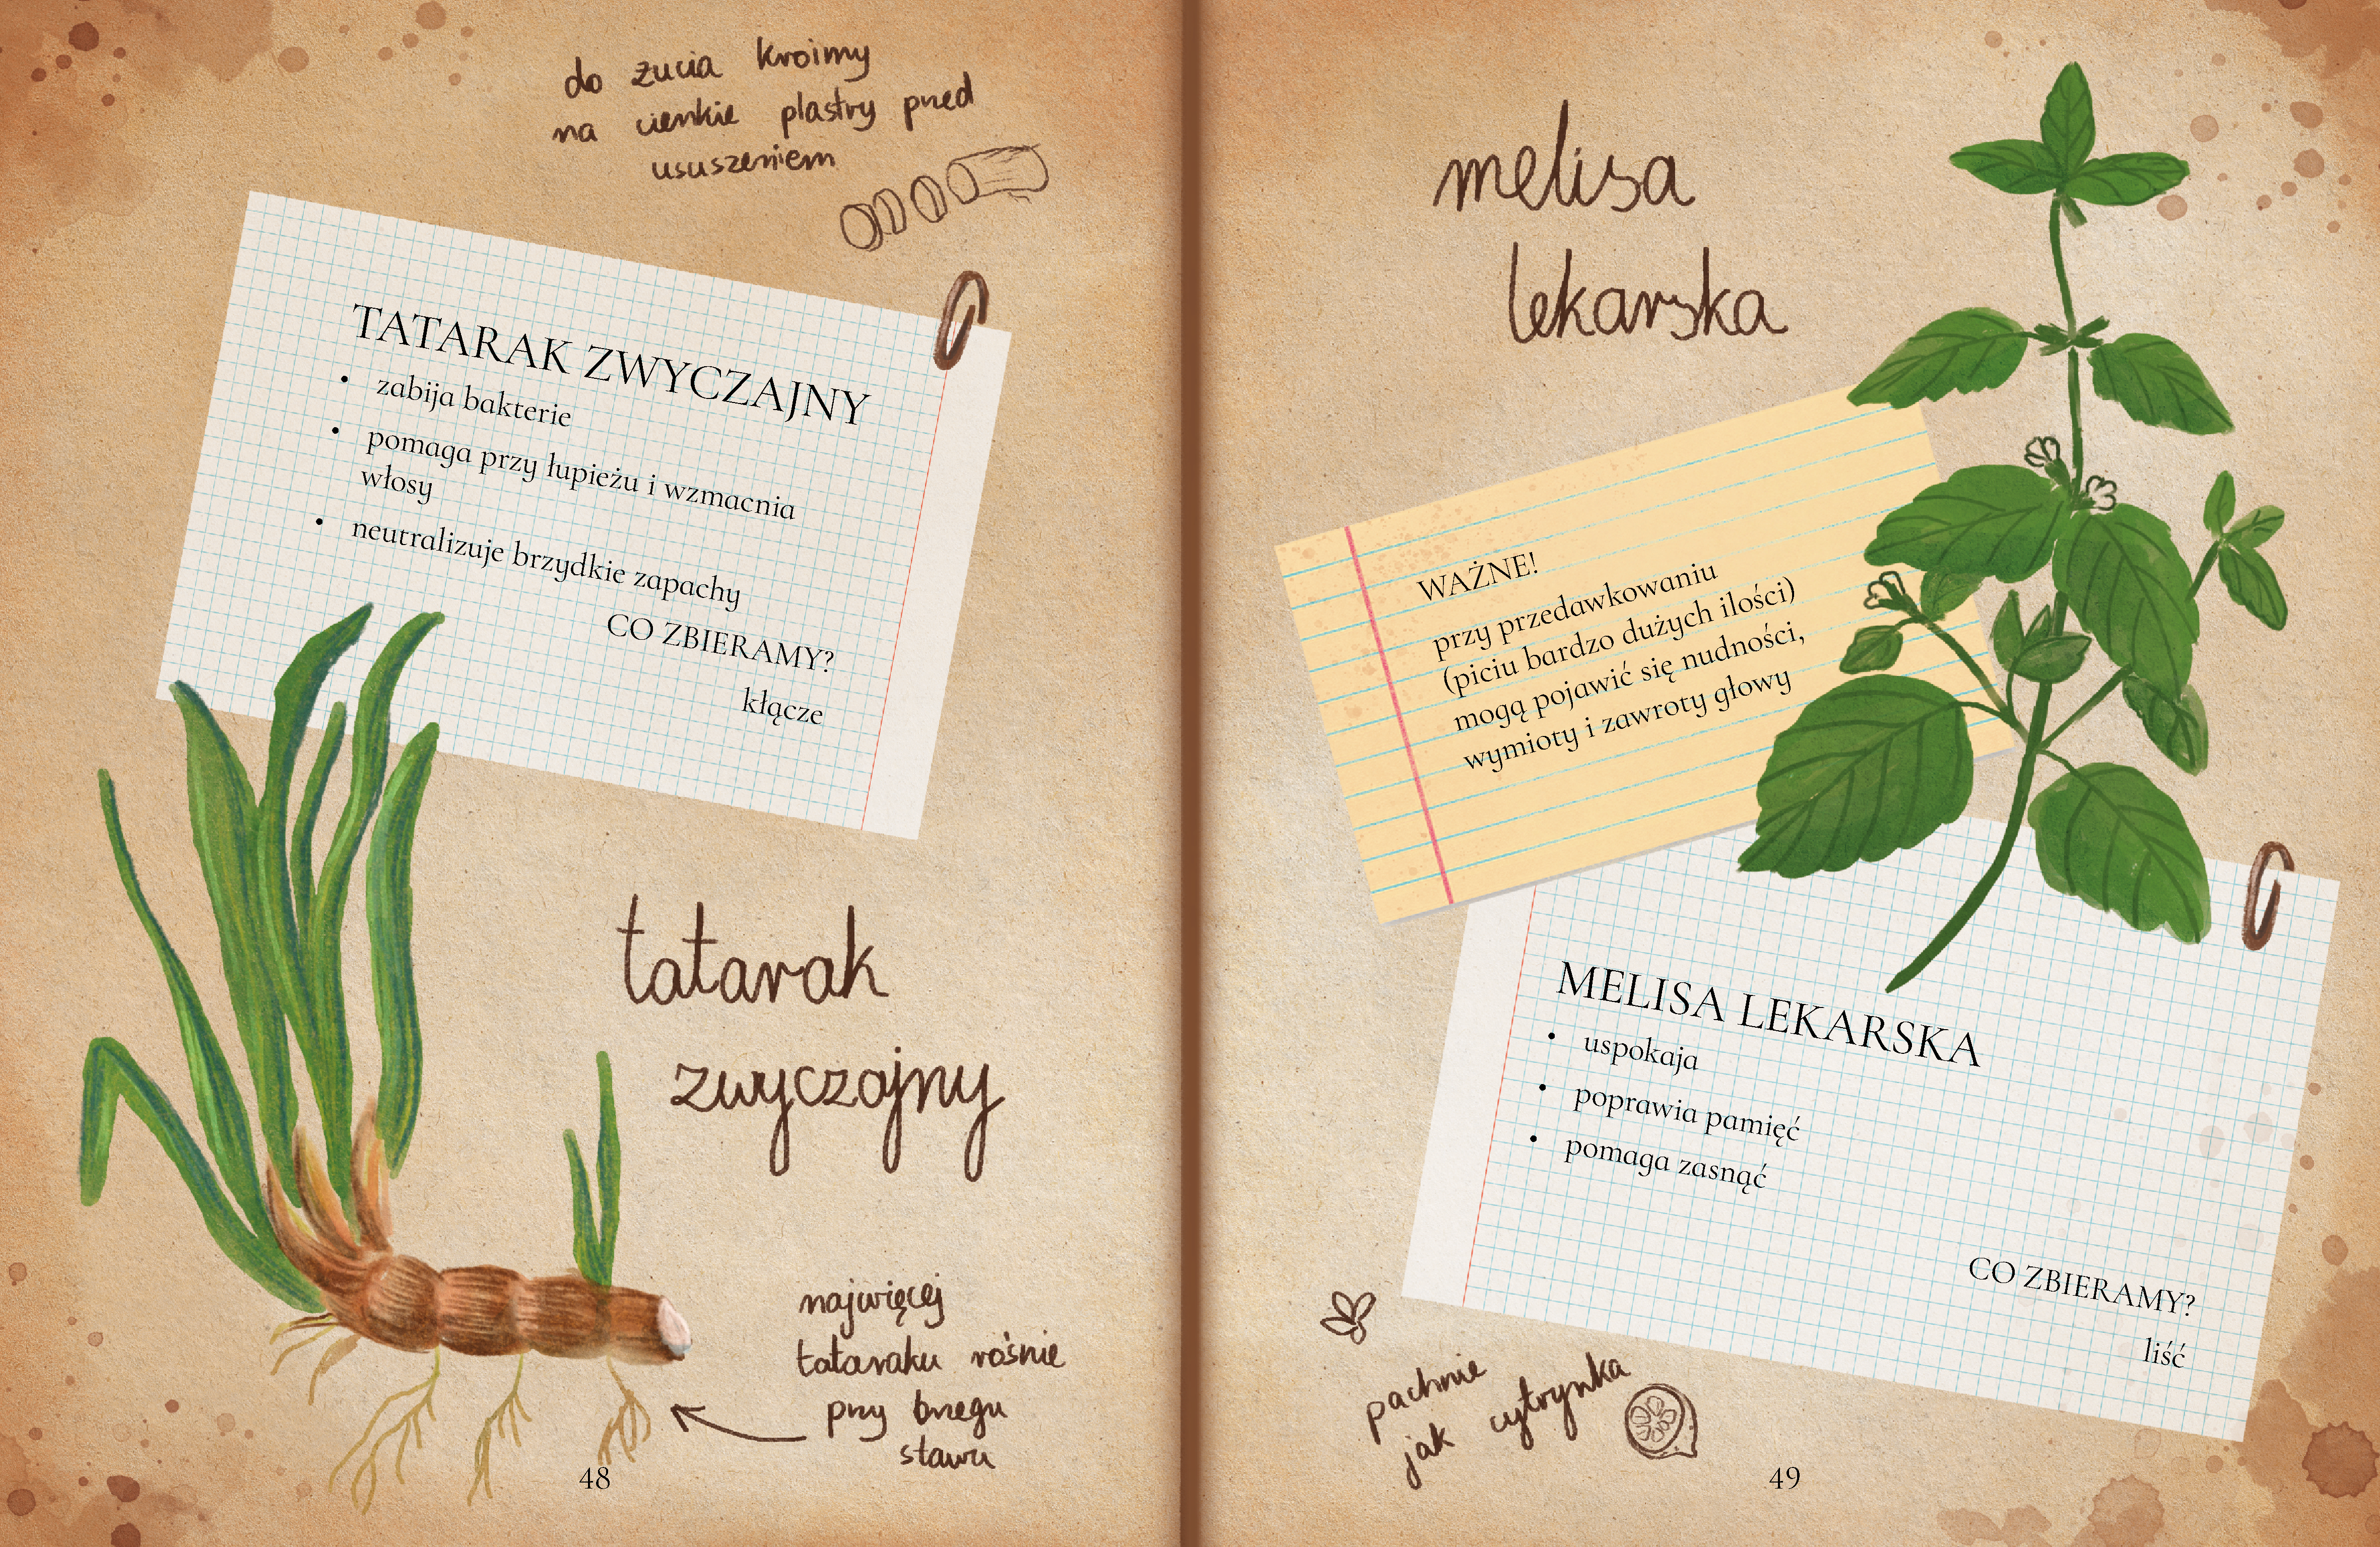 do żucia kroimy
na cienkie plastry przed
ususzeniem
TATARAK ZWYCZAJNY
• zabija bakterie
• pomaga przy łupieżu i wzmacnia
włosy
• neutralizuje brzydkie zapachy
CO ZBIERAMY?
kłącze
tatarak
zwyczajny
najwięcej
tataraku rośnie
przy brzegu
stawu
48
melisa
lekarska
WAŻNE!
przy przedawkowaniu
(piciu bardzo dużych ilości)
mogą pojawić się nudności,
wymioty i zawroty głowy
MELISA LEKARSKA
• uspokaja
• poprawia pamięć
• pomaga zasnąć
CO ZBIERAMY?
liść
pachnie
jak cytrynka
49